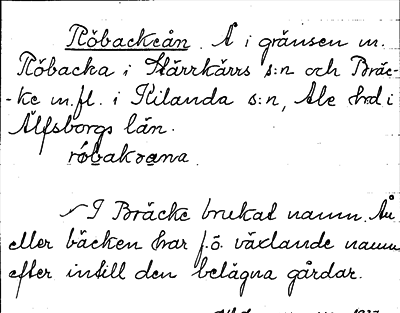 Röbackeån. Å i gränsen m.
Röbacka i Starrkärrs s:n och Bräc-
-ke m.fl. i Kilanda s:n, Ale hrd i
Älfsborgs län.
röbakoana.
I Bräcke brukat namn. Ån
eller bäcken har f.ö. växlande namn
efter intill den belägna gårdar.